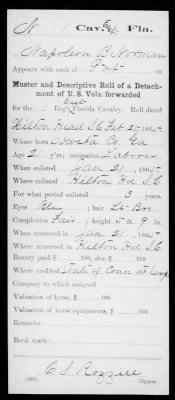 N Cav. Fla.
Napoleon B Norman
Appears with rank of Pvt on
Muster and Descriptive Roll of a Detach-
ment of U. S. Vols. forwarded
for the 1 Reg't Florida Cavalry. Roll dated
Hilton Head S.C. Feb 25, 1865.
Where born Coweta Co. Ga
Age 2 y'rs; occupation Laborer
When enlisted Jan 21, 1865
Where enlisted Hilton Hd S.C.
For what period enlisted 3 years.
Eyes Blue; hair Lt. Bro
Complexion Fair; height 5 ft. 9 in.
When mustered in Jan 21, 1865
Where mustered in Hilton Hd S.C.
Bounty paid $ 100; due $ 100
Where credited State of Conn at large
Company to which assigned
Valuation of horse, $ 100
Valuation of horse equipments, $ 100
Remarks:
Book mark:
Copyist.